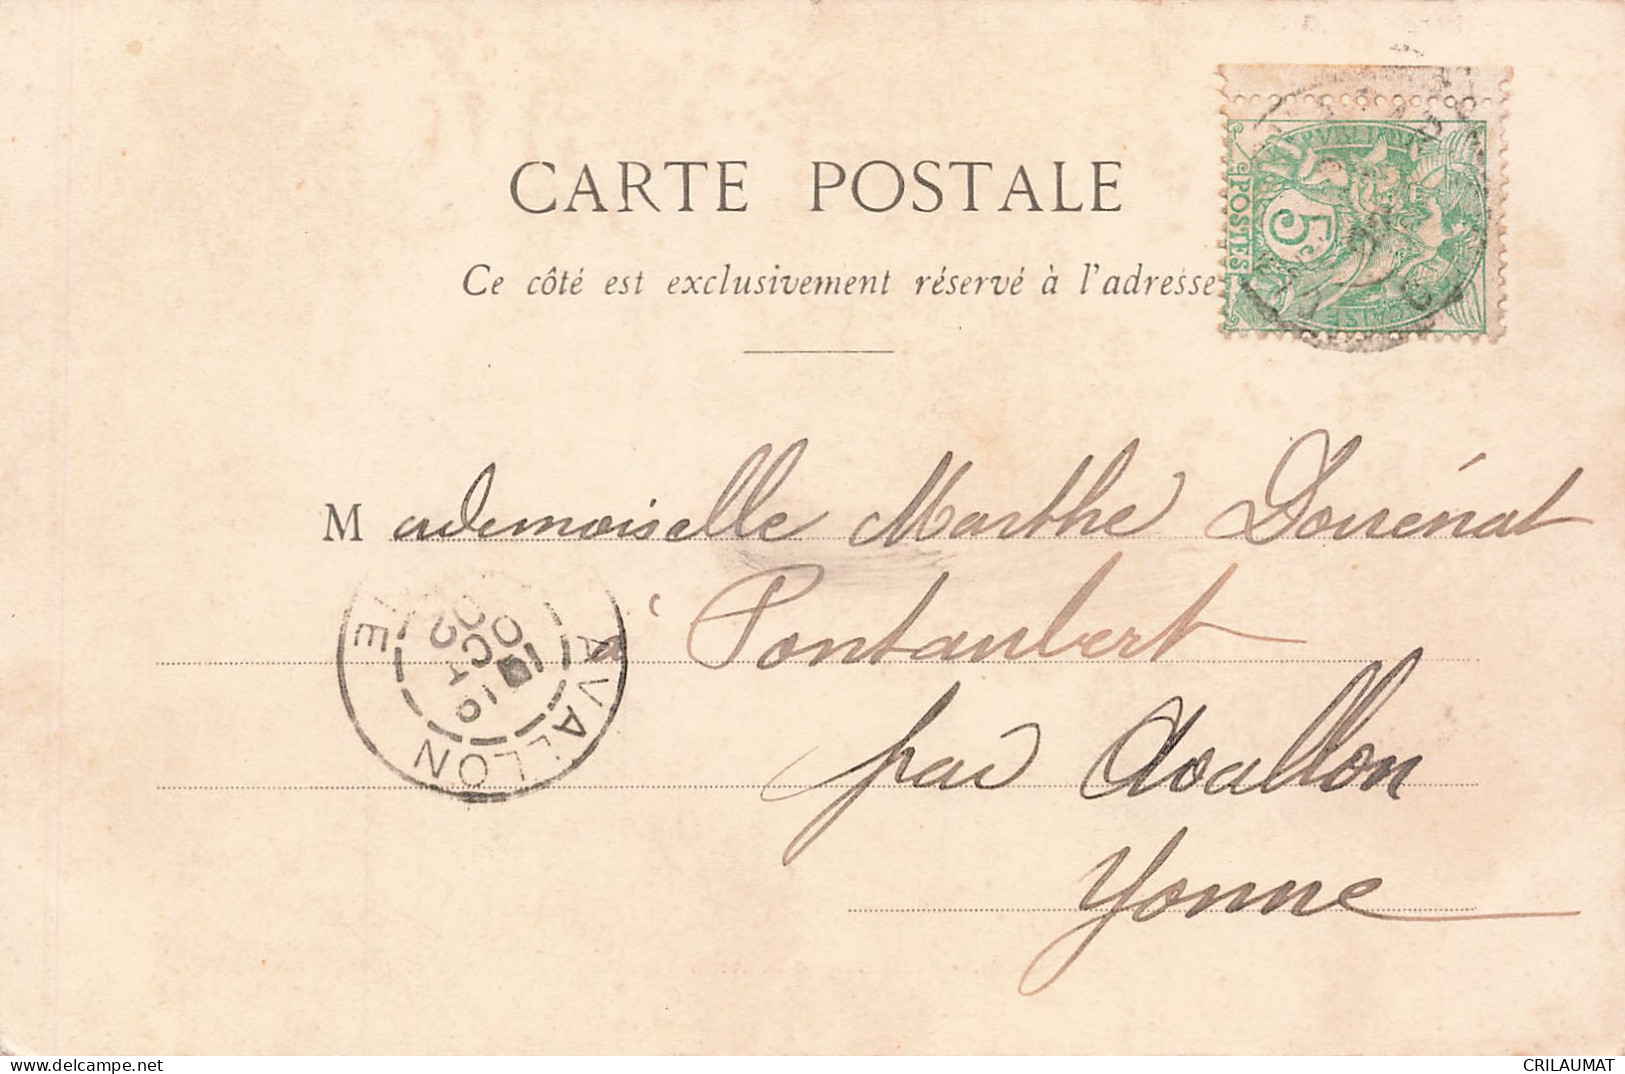 CARTE POSTALE
Ce côté est exclusivement réservé à l'adresse
POSTES
5c
Mademoiselle Marthe Dorrénat
à Pontaubert
par Avallon
Yonne
AVALLON
OCT
02
http://www.delcampe.net
CRILAUMAT